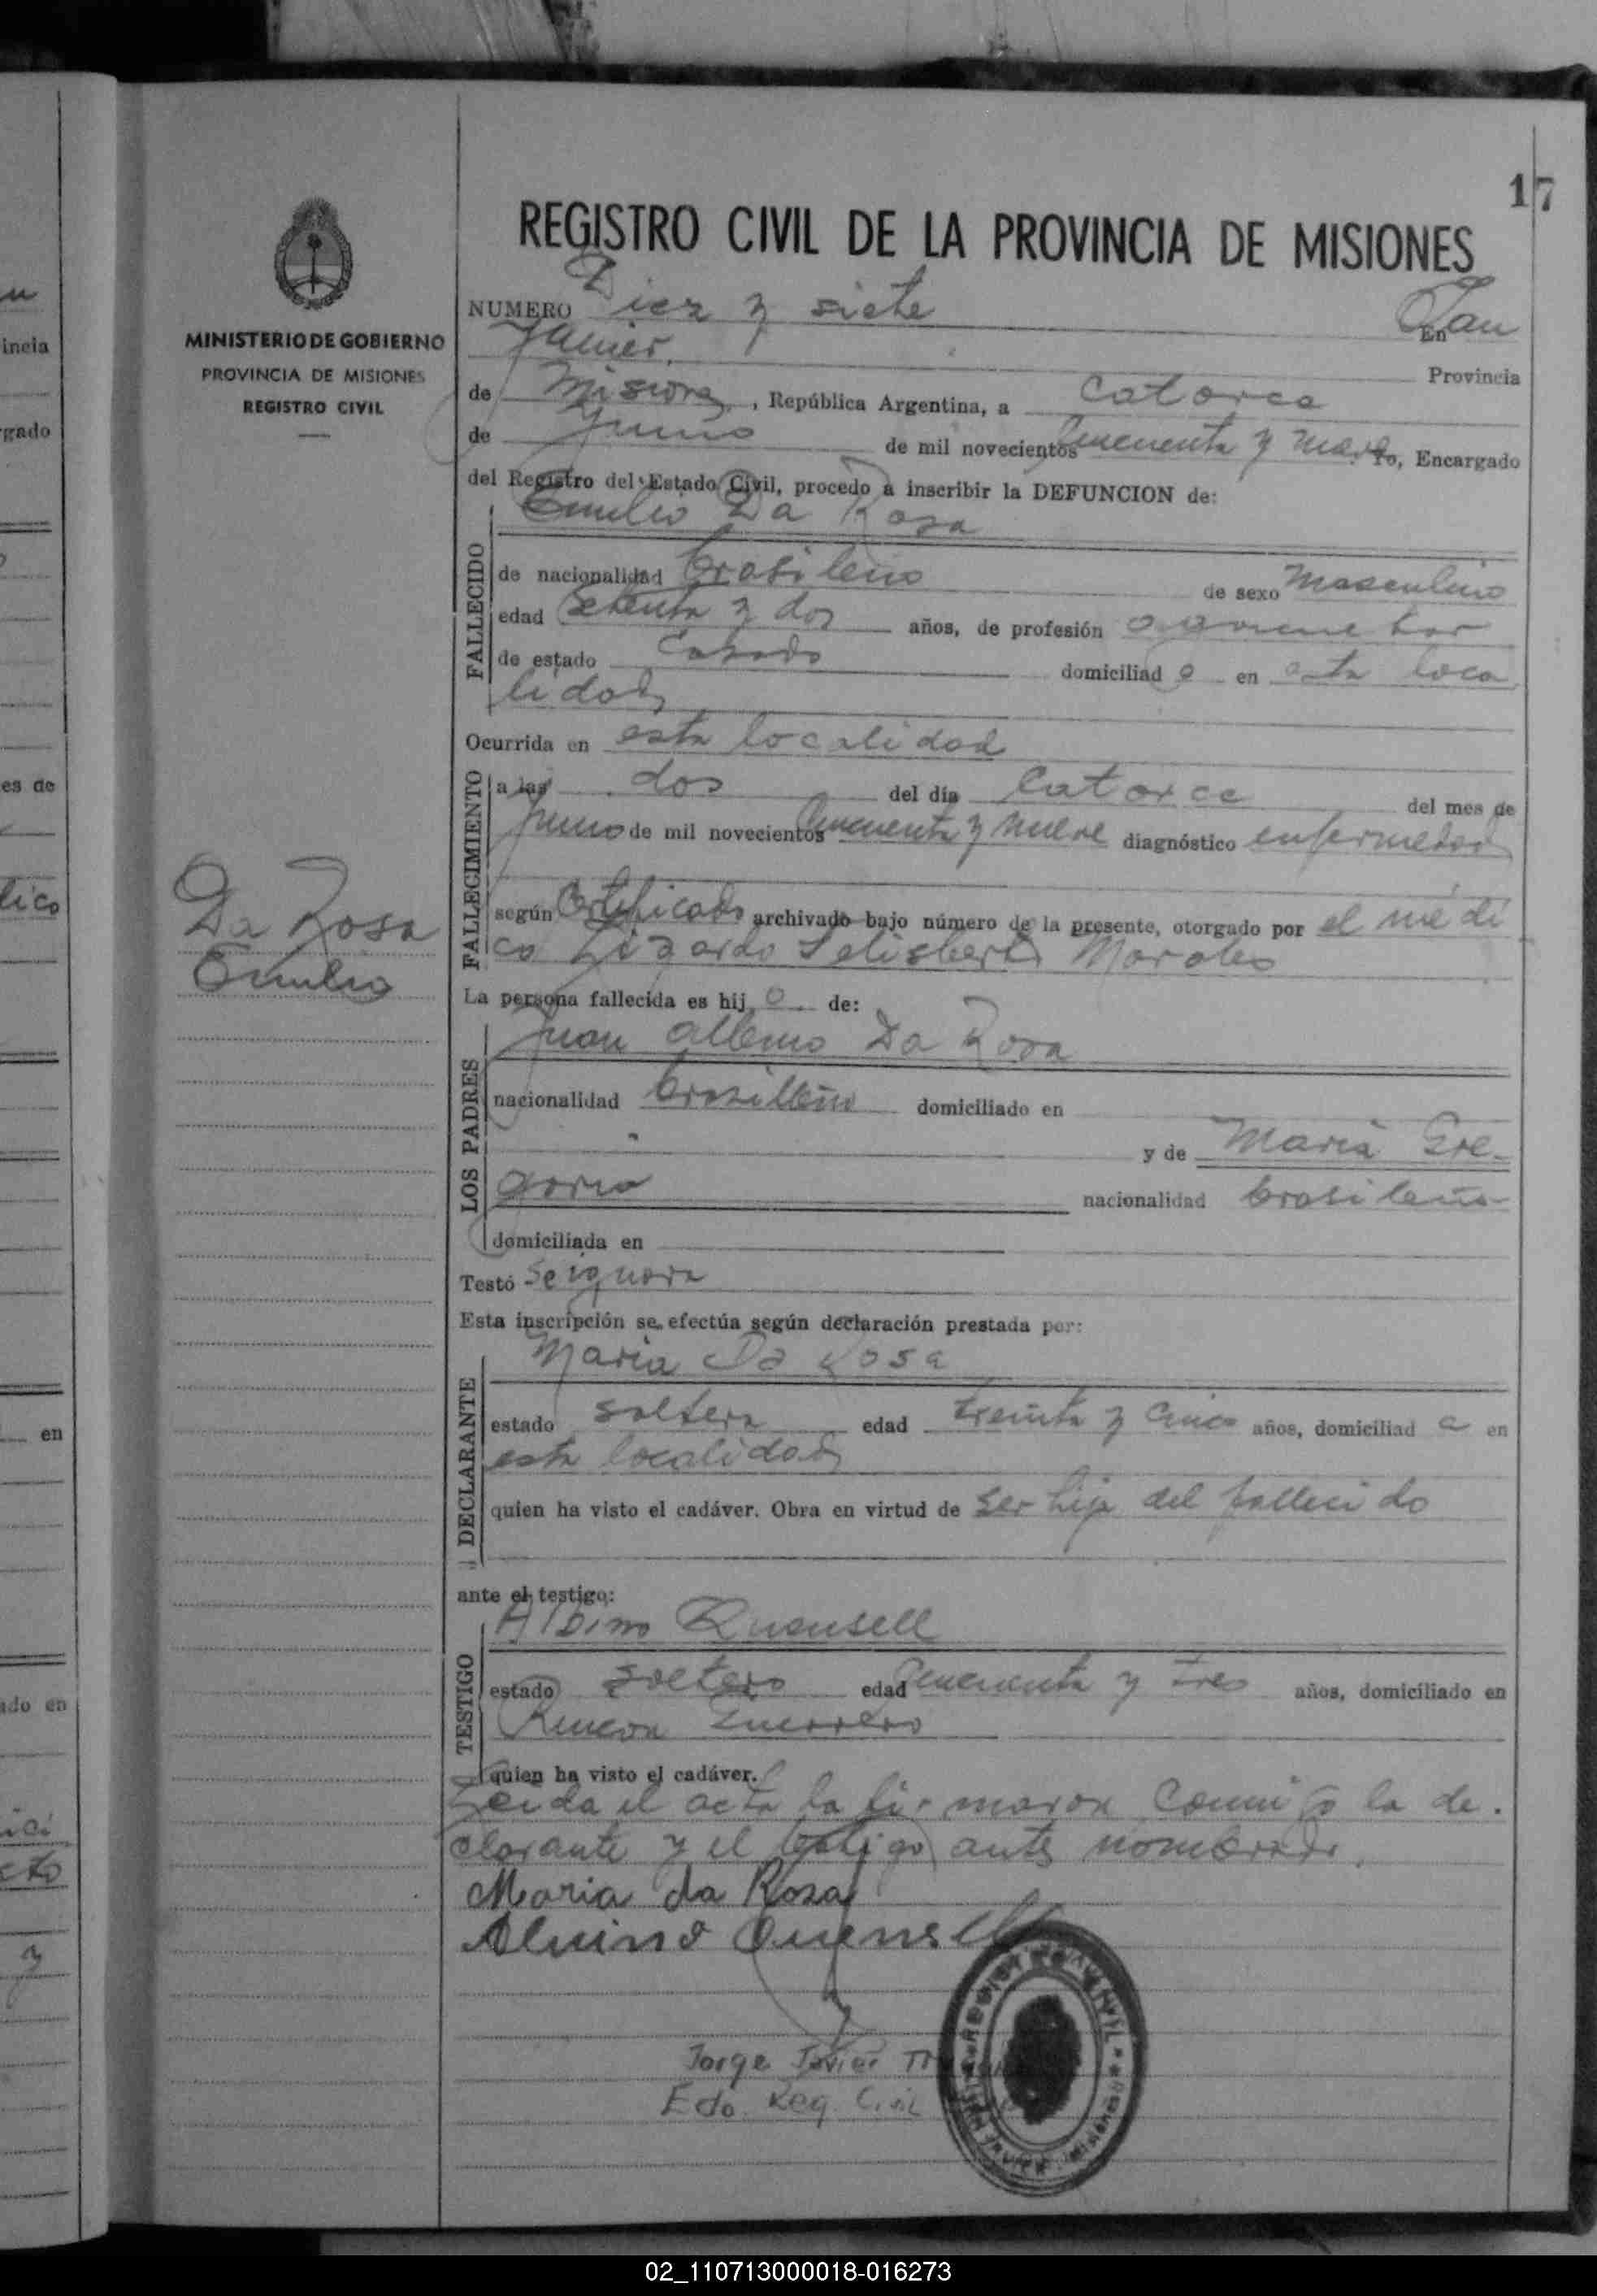 17
REGISTRO CIVIL DE LA PROVINCIA DE MISIONES
MINISTERIO DE GOBIERNO
PROVINCIA DE MISIONES
REGISTRO CIVIL
NUMERO Diez y siete En San
Javier, Provincia
de Misiones, República Argentina, a catorce
de Junio de mil novecientos cincuenta y nueve Yo, Encargado
del Registro del Estado Civil, procedo a inscribir la DEFUNCION de:
Emilio Da Rosa
FALLECIDO
de nacionalidad brasileño de sexo Masculino
edad Setenta y dos años, de profesión agricultor
de estado Casado domiciliad o en esta loca
lidad
Ocurrida en esta localidad
FALLECIMIENTO
a las dos del día Catorce del mes de
Junio de mil novecientos cincuenta y nueve diagnóstico enfermedad
según Certificado archivado bajo número de la presente, otorgado por el médi
co Lizardo Morales
Da Rosa
Emilio
La persona fallecida es hij o de:
LOS PADRES
Juan Da Rosa
nacionalidad brasilleño domiciliado en
y de Maria Gre-
goria nacionalidad brasileña
domiciliada en
Testó Se ignora
Esta inscripción se efectúa según declaración prestada por:
DECLARANTE
Maria Da Rosa
estado soltera edad treinta y cinco años, domiciliad a en
esta localidad
quien ha visto el cadáver. Obra en virtud de ser hija del fallecido
ante el testigo:
TESTIGO
Albino Quensell
estado soltero edad cincuenta y tres años, domiciliado en
Rincon Guerrero
quien ha visto el cadáver.
Leida el acta la firmaron conmigo la de.
clarante y el testigo antes nombrado.
Maria da Rosa
Aluino Quensell
Jorge Javier
Edo. Reg. Civil
02_110713000018-016273